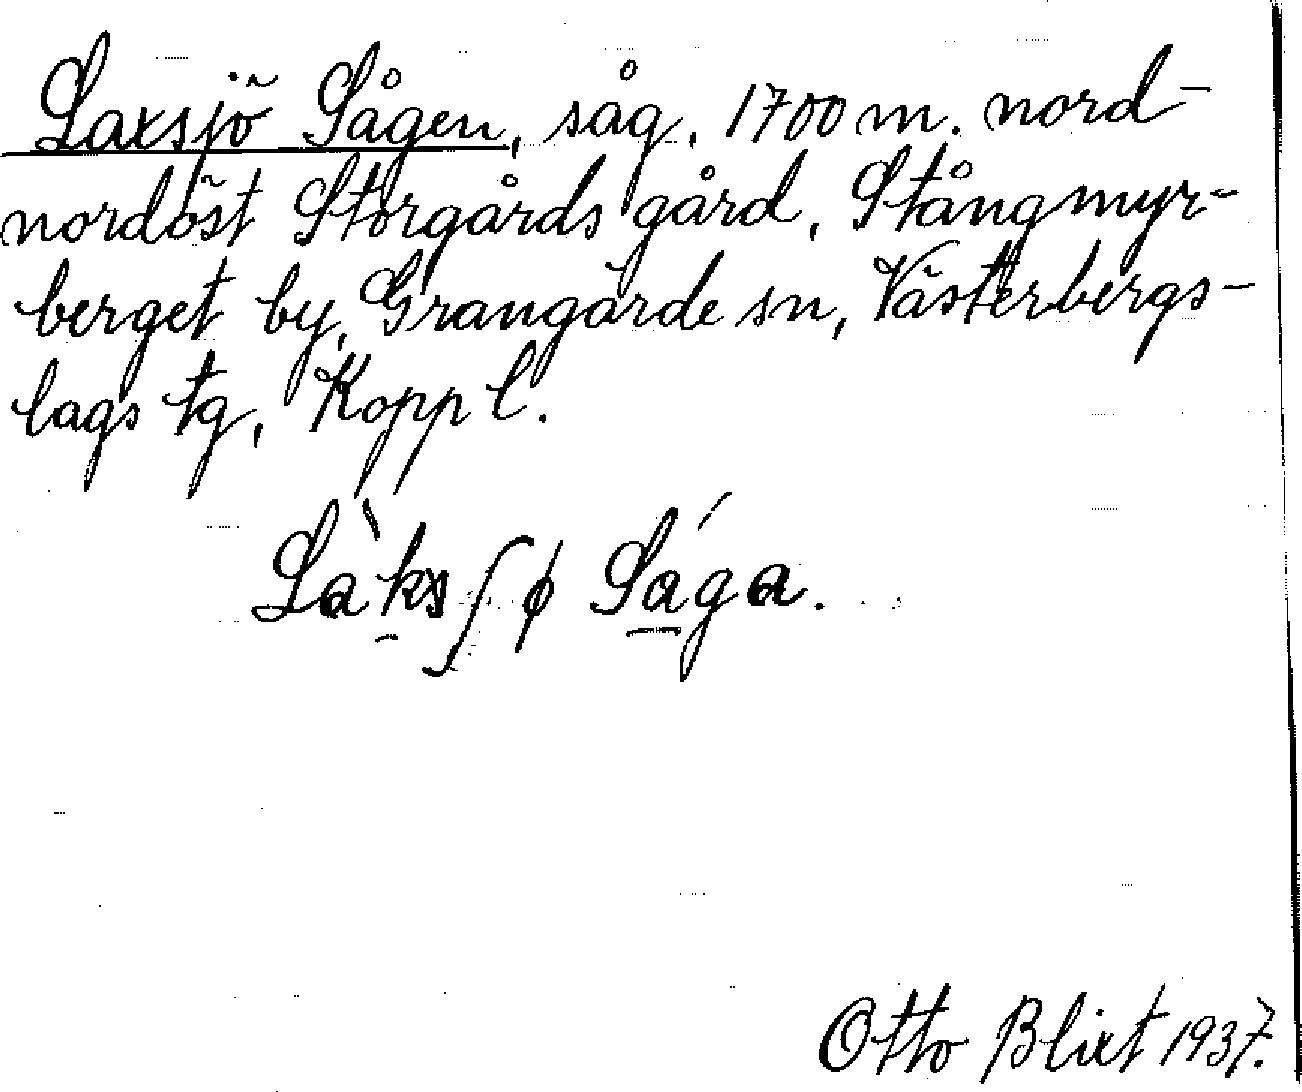 Laxsjö Sågen, såg, 1700 m. nord-
nordöst Storgårds gård, Stångmyr-
berget by, Grangärde sn, Västerbergs-
lags tg, Kopp l.
Làksʃø Sága.
Otto Blixt 1937.